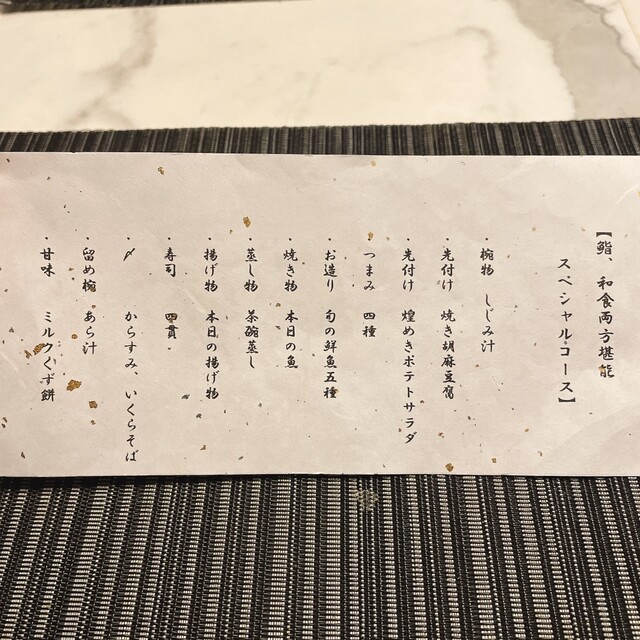 【鮨、和食両方堪能
スペシャルコース】
・椀物 しじみ汁
・先付け 焼き胡麻豆腐
・先付け 燻めきポテトサラダ
・つまみ 四種
・お造り 旬の鮮魚五種
・焼き物 本日の魚
・蒸し物 茶碗蒸し
・揚げ物 本日の揚げ物
・寿司 四貫
・〆 からすみ、いくらそば
・留め椀 あら汁
・甘味 ミルクくず餅